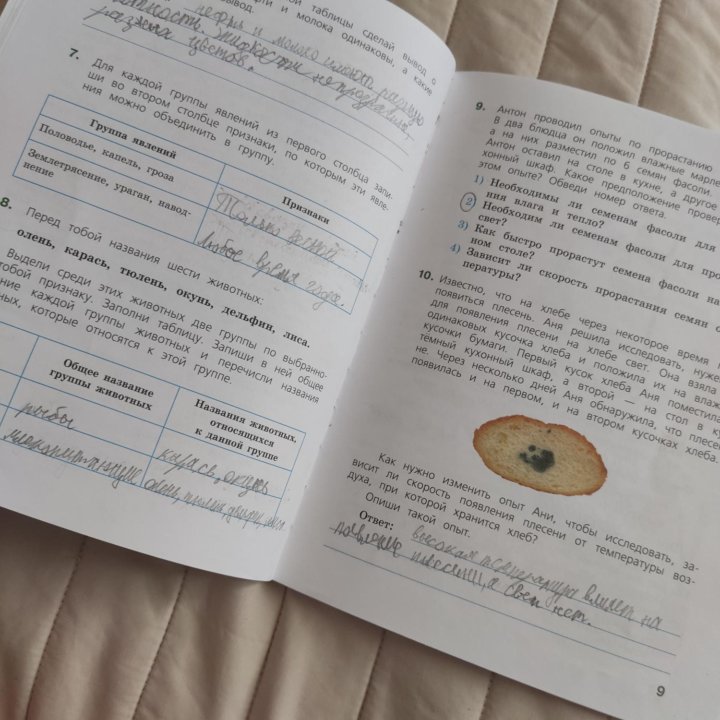 таблицы сделай вывод о
и молока одинаковы, а какие
вывод.
нефти и молоко
7. Для каждой группы явлений из первого столбца запи-
ши во втором столбце признаки, по которым эти явле-
ния можно объединить в группу.
Группа явлений
Признаки
Половодье, капель, гроза
Только весной
Землетрясение, ураган, навод-
нение
Любое время года
8. Перед тобой названия шести животных:
олень, карась, тюлень, окунь, дельфин, лиса.
Выдели среди этих животных две группы по выбранно-
тобой признаку. Заполни таблицу. Запиши в ней общее
ние каждой группы животных и перечисли названия
ных, которые относятся к этой группе.
Общее название
группы животных
Названия животных,
относящихся
к данной группе
рыбы
карась, окунь
млекопитающие
олень, тюлень, дельфин, лиса
9. Антон проводил опыты по прорастанию
В два блюдца он положил влажные
а на них разместил по 6 семян фасоли.
Антон оставил на столе в кухне, а другое
хонный шкаф. Какое предположение
этом опыте? Обведи номер ответа.
1) Необходимы ли семенам фасоли для
ния влага и тепло?
2) Необходим ли семенам фасоли для
свет?
3) Как быстро прорастут семена фасоли
ном столе?
4) Зависит ли скорость прорастания семян
пературы?
10. Известно, что на хлебе через некоторое время
появиться плесень. Аня решила исследовать,
для появления плесени на хлебе свет. Она взяла
одинаковых кусочка хлеба и положила их на
кусочки бумаги. Первый кусок хлеба Аня поместила
тёмный кухонный шкаф, а второй — на стол в
не. Через несколько дней Аня обнаружила, что
появилась и на первом, и на втором кусочках хлеба.
Как нужно изменить опыт Ани, чтобы исследовать, за-
висит ли скорость появления плесени от температуры воз-
духа, при которой хранится хлеб?
Опиши такой опыт.
Ответ: высокая температура влияет на
появление плесени, а свет нет.
9